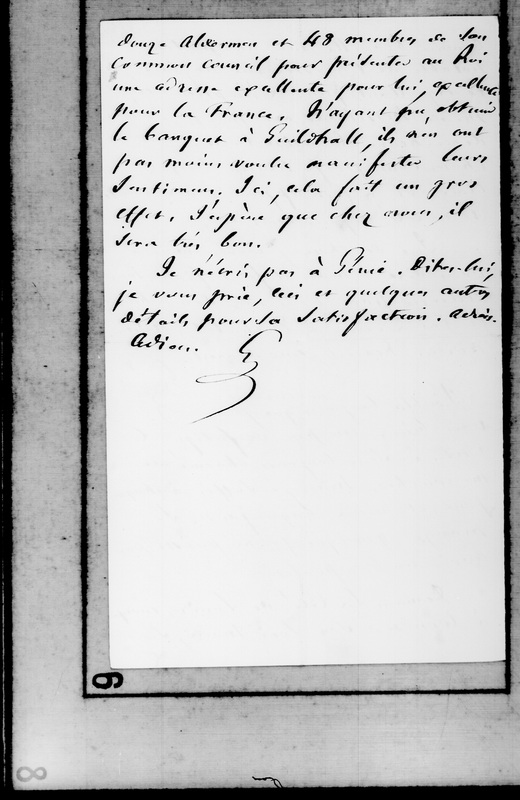 douze Aldermen et 48 membres de son
Common Council pour présenter au Roi
une adresse excellente pour lui, excellente
pour la France. N'ayant pu obtenir
le banquet à Guildhall, ils n'en ont
pas moins voulu manifester leurs
sentimens. Ici, cela fait un gros
effet. J'espère que chez vous, il
sera très bon.
Je n'écris pas à Génie. Dites-lui,
je vous prie, ceci et quelques autres
détails pour sa satisfaction. Adieu.
Adieu.
G
9
8